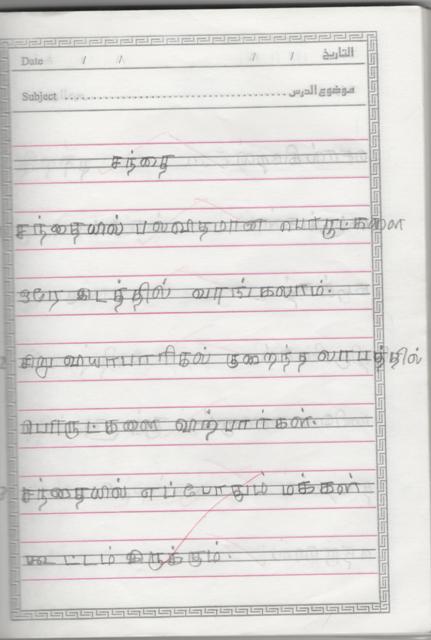 Date / / / / التاريخ
Subject موضوع الدرس
சந்தை
சந்தையில் பலவிதமான பொருட்களை
ஒரே இடத்தில் வாங்கலாம்.
2 சிறு வியாபாரிகள் குறைந்த லாபத்தில்
பொருட்களை விற்பார்கள்.
3 சந்தையில் எப்போதும் மக்கள்
கூட்டம் இருக்கும்.